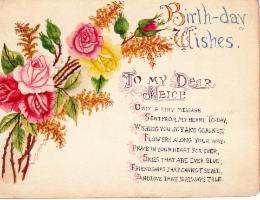 Birth-day
Wishes.
To my Dear
Neice
Only a tiny message
Sent from my heart to-day,
Wishing you joy and gladness
Flowers along your way;
Peace in your heart for ever,
Skies that are ever blue;
Friendships that cannot sever,
And love that is always true.